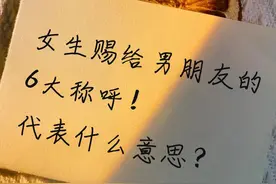 女生赐给男朋友的
6大称呼！
代表什么意思？